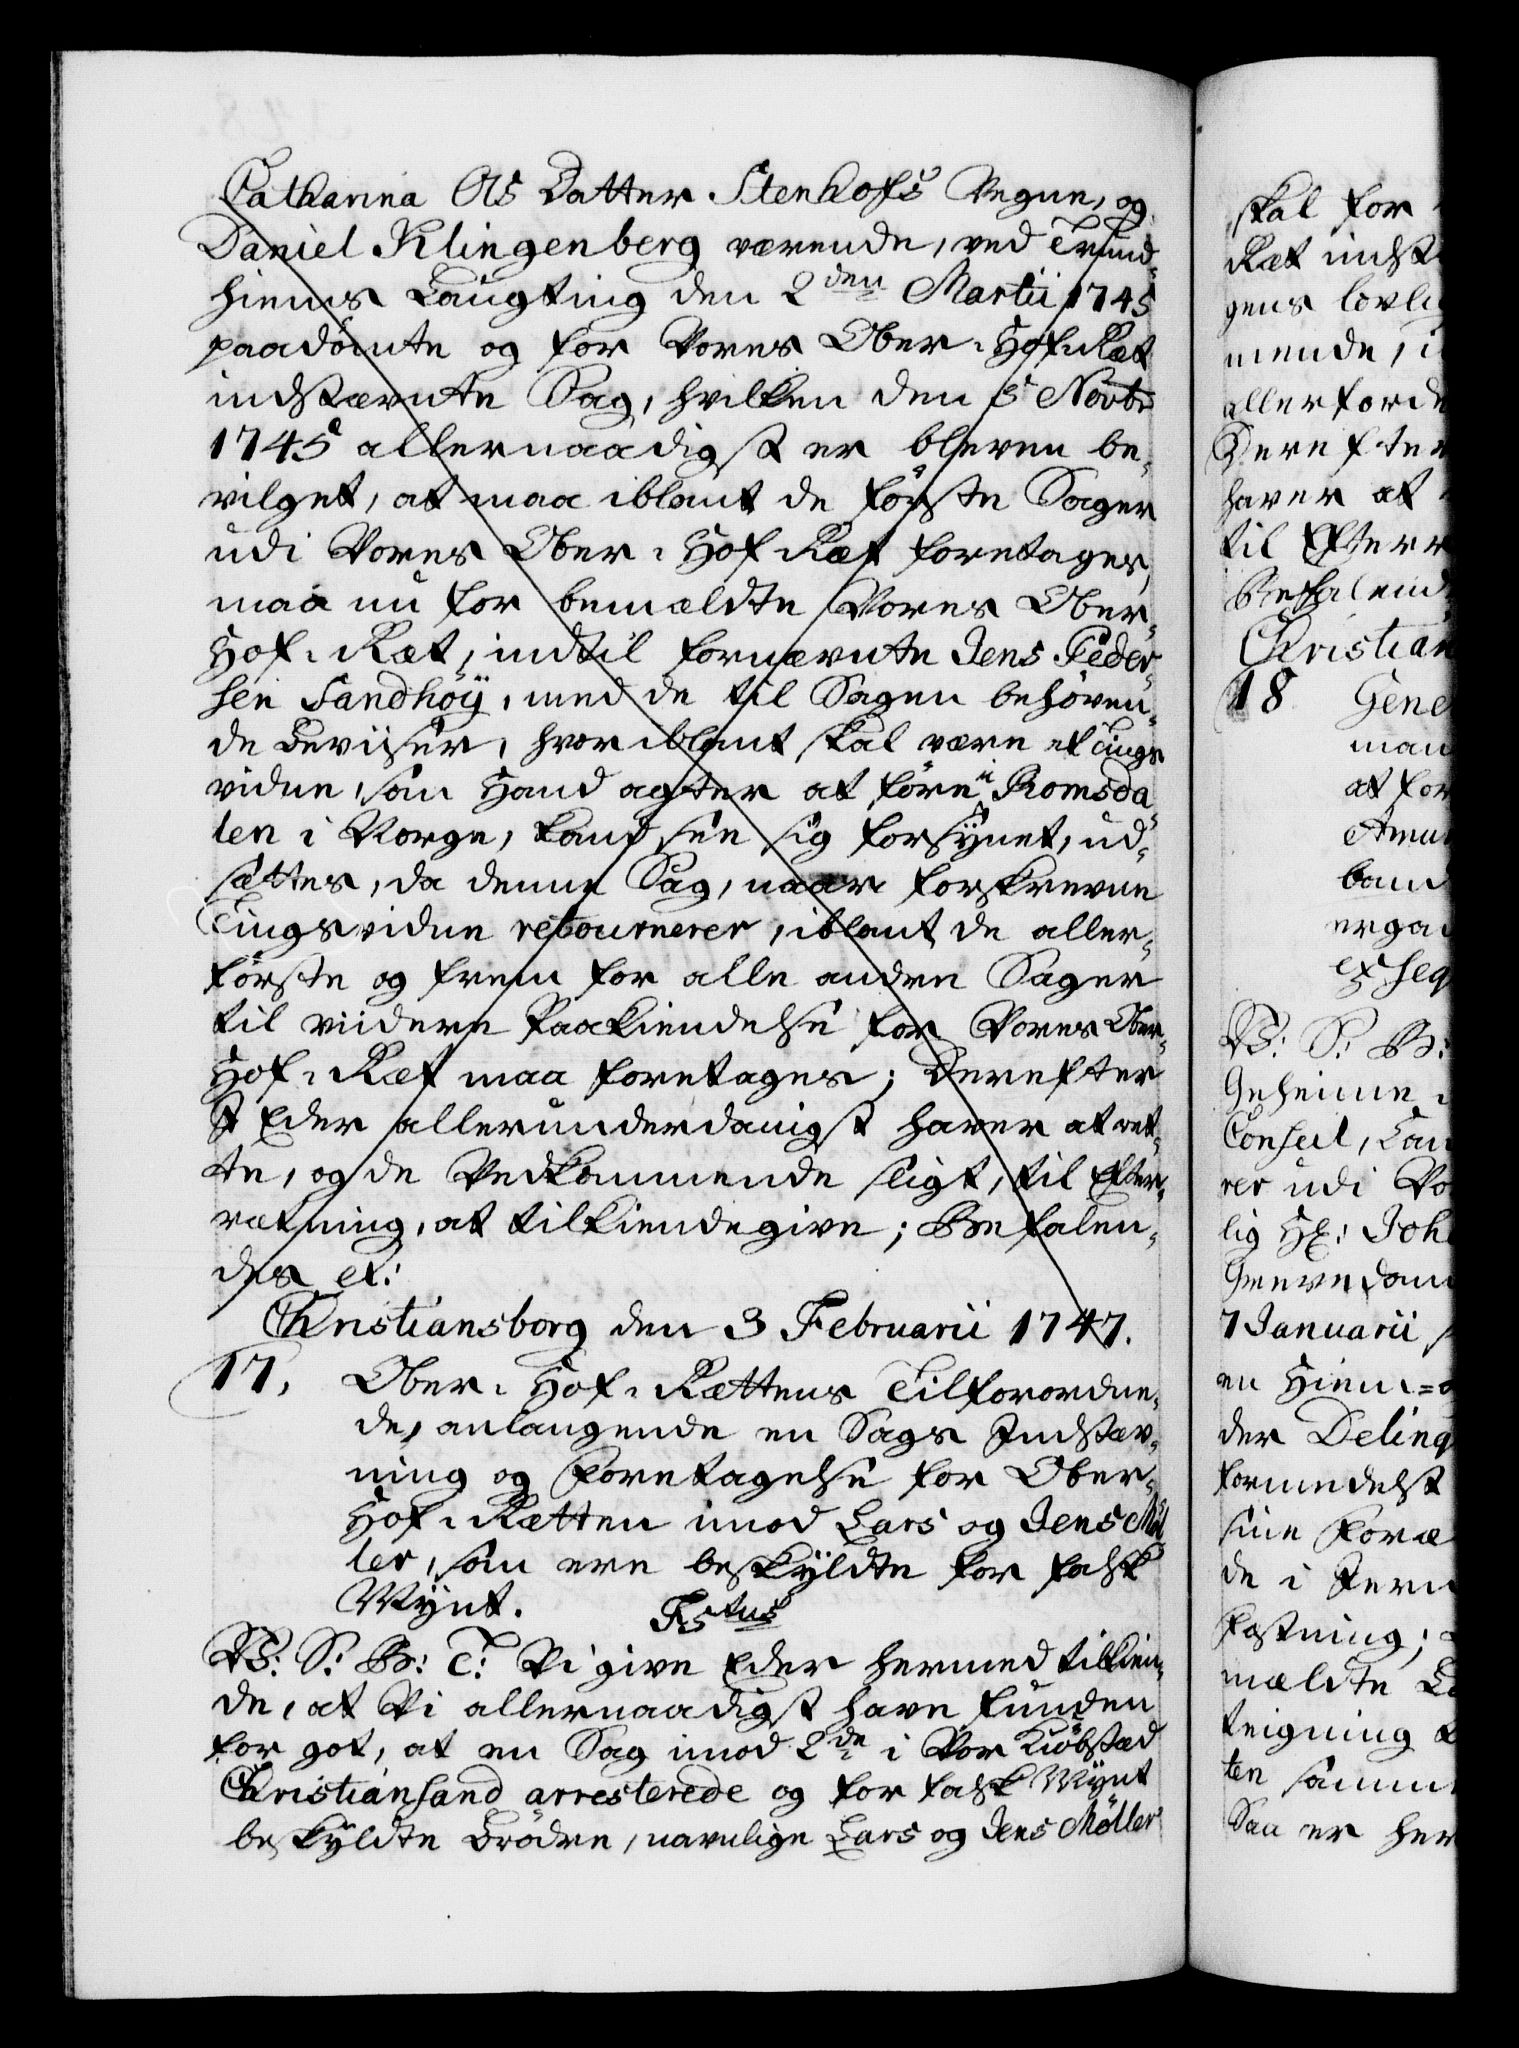 Catharina Ols Datter Stenhofs Vegne, og
Daniel Klingenberg værende, ved Trund-
hiems Laugting den 2den Martii 1745
paadömte og for Vores Ober-Hof-Ræt
indstævnte Sag, hvilken den 5 Novbr
1745 allernaadigst er bleven be-
vilget, at maa iblant de förste Sager
udi Vores Ober-Hof-Ræt foretages,
maa nu for bemældte Vores Ober-
Hof-Ræt, indtil fornævnte Jens Peder-
sen Sandhöÿ, med de til Sagen behöven-
de Beviiser, hvoriblant skal være et Tings
vidne, som Hand agter at före i Romsda-
len i Norge, kand see sig forsÿnet, ud-
sættes, da denne Sag, naar forskrevne
Tingsvidne retournerer, iblant de aller-
förste og frem for alle andre Sager
til viidere Paakiendelse for Vores Ober-
Hof-Ræt maa foretages; Derefter
I Eder allerunderdanigst haver at ret-
te, og de Vedkommende sligt, til Efter-
rætning, at tilkiendegive; Befalen-
des etc:
Christiansborg den 3 Februarii 1747.
17, Ober-Hof-Rættens Tilforordne-
de, anlangende en Sags Indstæv-
ning og Foretagelse for Ober-
Hof-Rætten imod Lars og Jens Möl
ler, som ere beskÿldte for falsk
Mÿnt. Fstus
V: S: G: T: Vi give Eder hermed tilkien-
de, at Vi allernaadigst have funden
for got, at en Sag imod 2de i Vor Kiöbstæd
Christiansand arresterede og for falsk Mÿnt
beskÿldte Brödre, navnlige Lars og Jens Möller
skal for
Ræt indst
gens lovlig
mende, i
allerforde
Derefter
haver at
til Efterr
Befalend
Christian
18 Gene
man
at for
Amu
band
ergan
et seq
V: S: G:
Geheime
Conseil, Can
rer udi Vo
lig Hr: Joh
Grevedom
7 Januarii
en Hiem=
der Delinq
formedelst
sine Foræ
de i Jern
Fæstning;
mældte La
teigning
ten samme
Saa er her